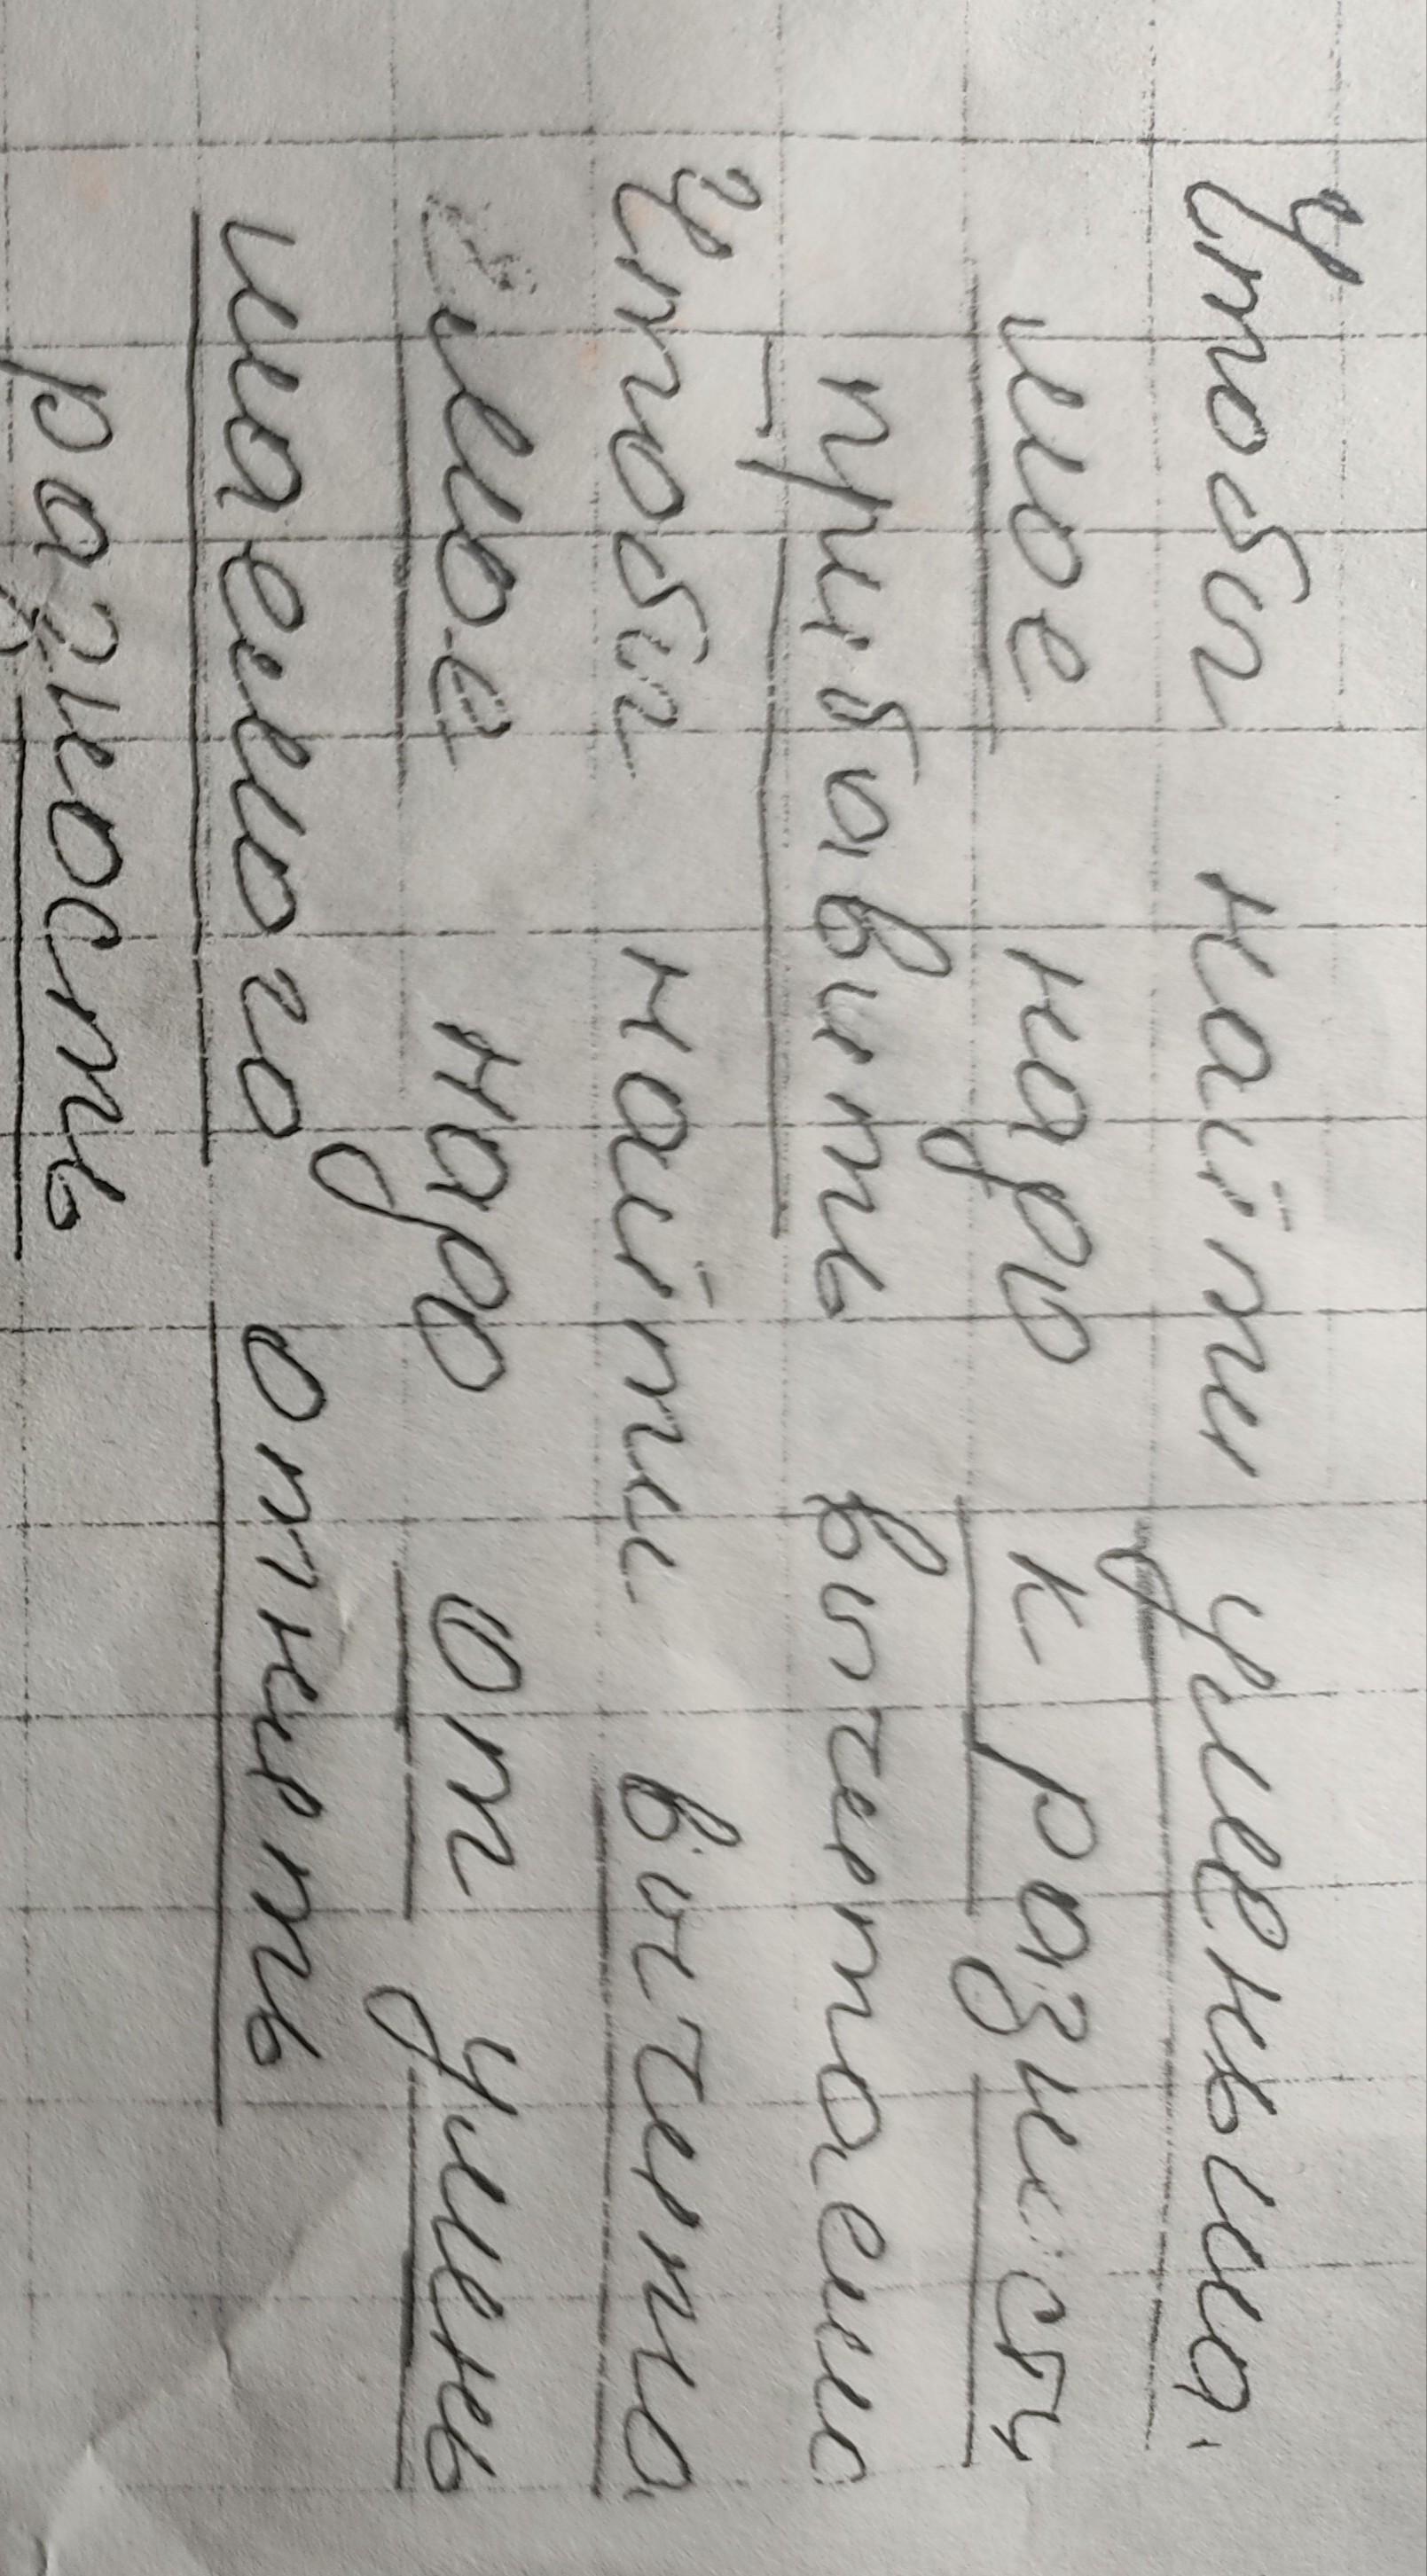 Чтобы найти уменьша.
мое надо к разности
прибавить вычитаемо
Чтобы найти вычита
емое надо от умень
шаемого отнять
разность